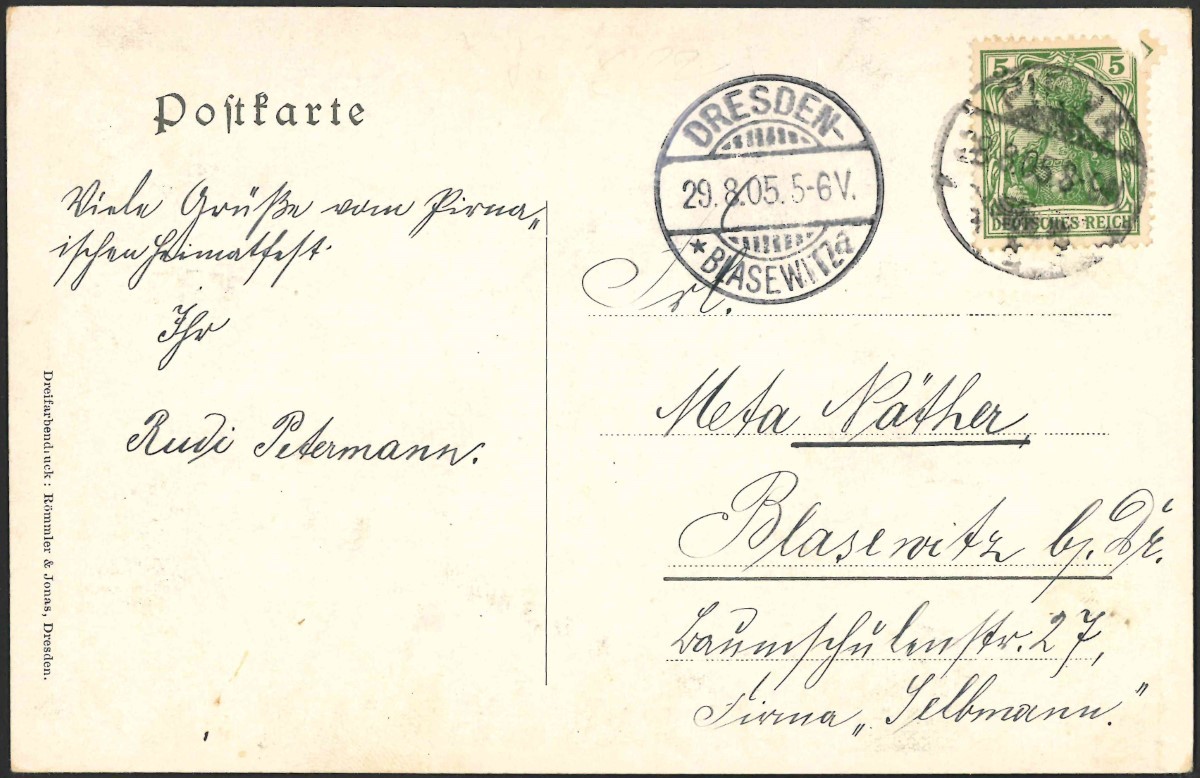 Postkarte
Viele Grüße vom Pirna„
ischen Heimatfest
Ihr
Rudi Petermann.
Dreifarbendruck: Römmler & Jonas, Dresden.
DRESDEN-
29.8.05.5-6V.
* BLASEWITZ a
5 5
DEUTSCHES REICH
Frl.
Meta Näther,
Blasewitz b. Dr.
Baumschulenstr. 27,
Firma „Selbmann."